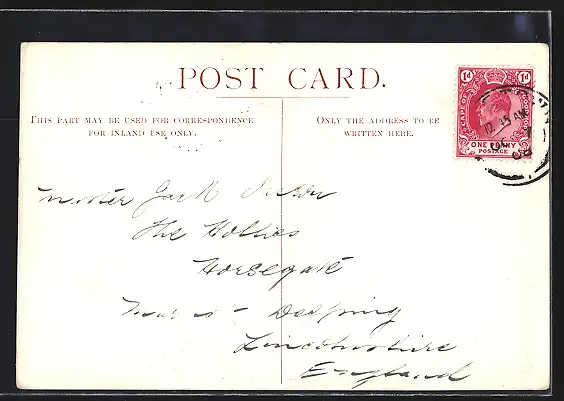 POST CARD.
THIS PART MAY BE USED FOR CORRESPONDENCE
FOR INLAND USE ONLY.
ONLY THE ADDRESS TO BE
WRITTEN HERE.
1d 1d
ONE PENNY
POSTAGE
Jack
The Hollies
Horsegate
Deeping
Lincolnshire
England